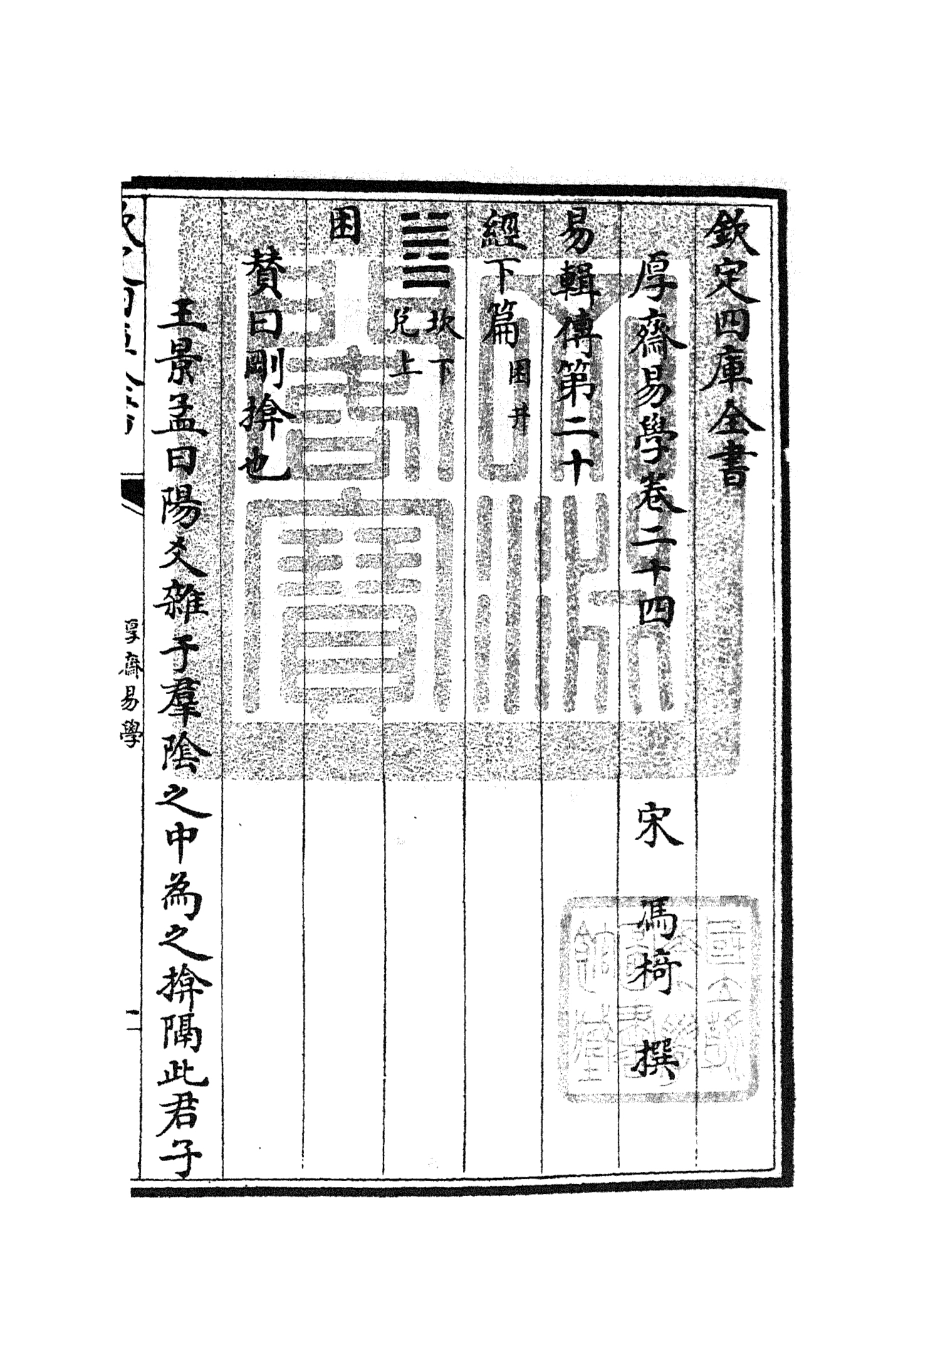 欽定四庫全書
厚齋易學卷二十四　宋　馮椅　撰
易輯傳第二十
經下篇 困 井
䷮ 坎下 兌上
困
贊曰剛揜也
王景孟曰陽爻雜于羣陰之中為之揜隔此君子
厚齋易學
一